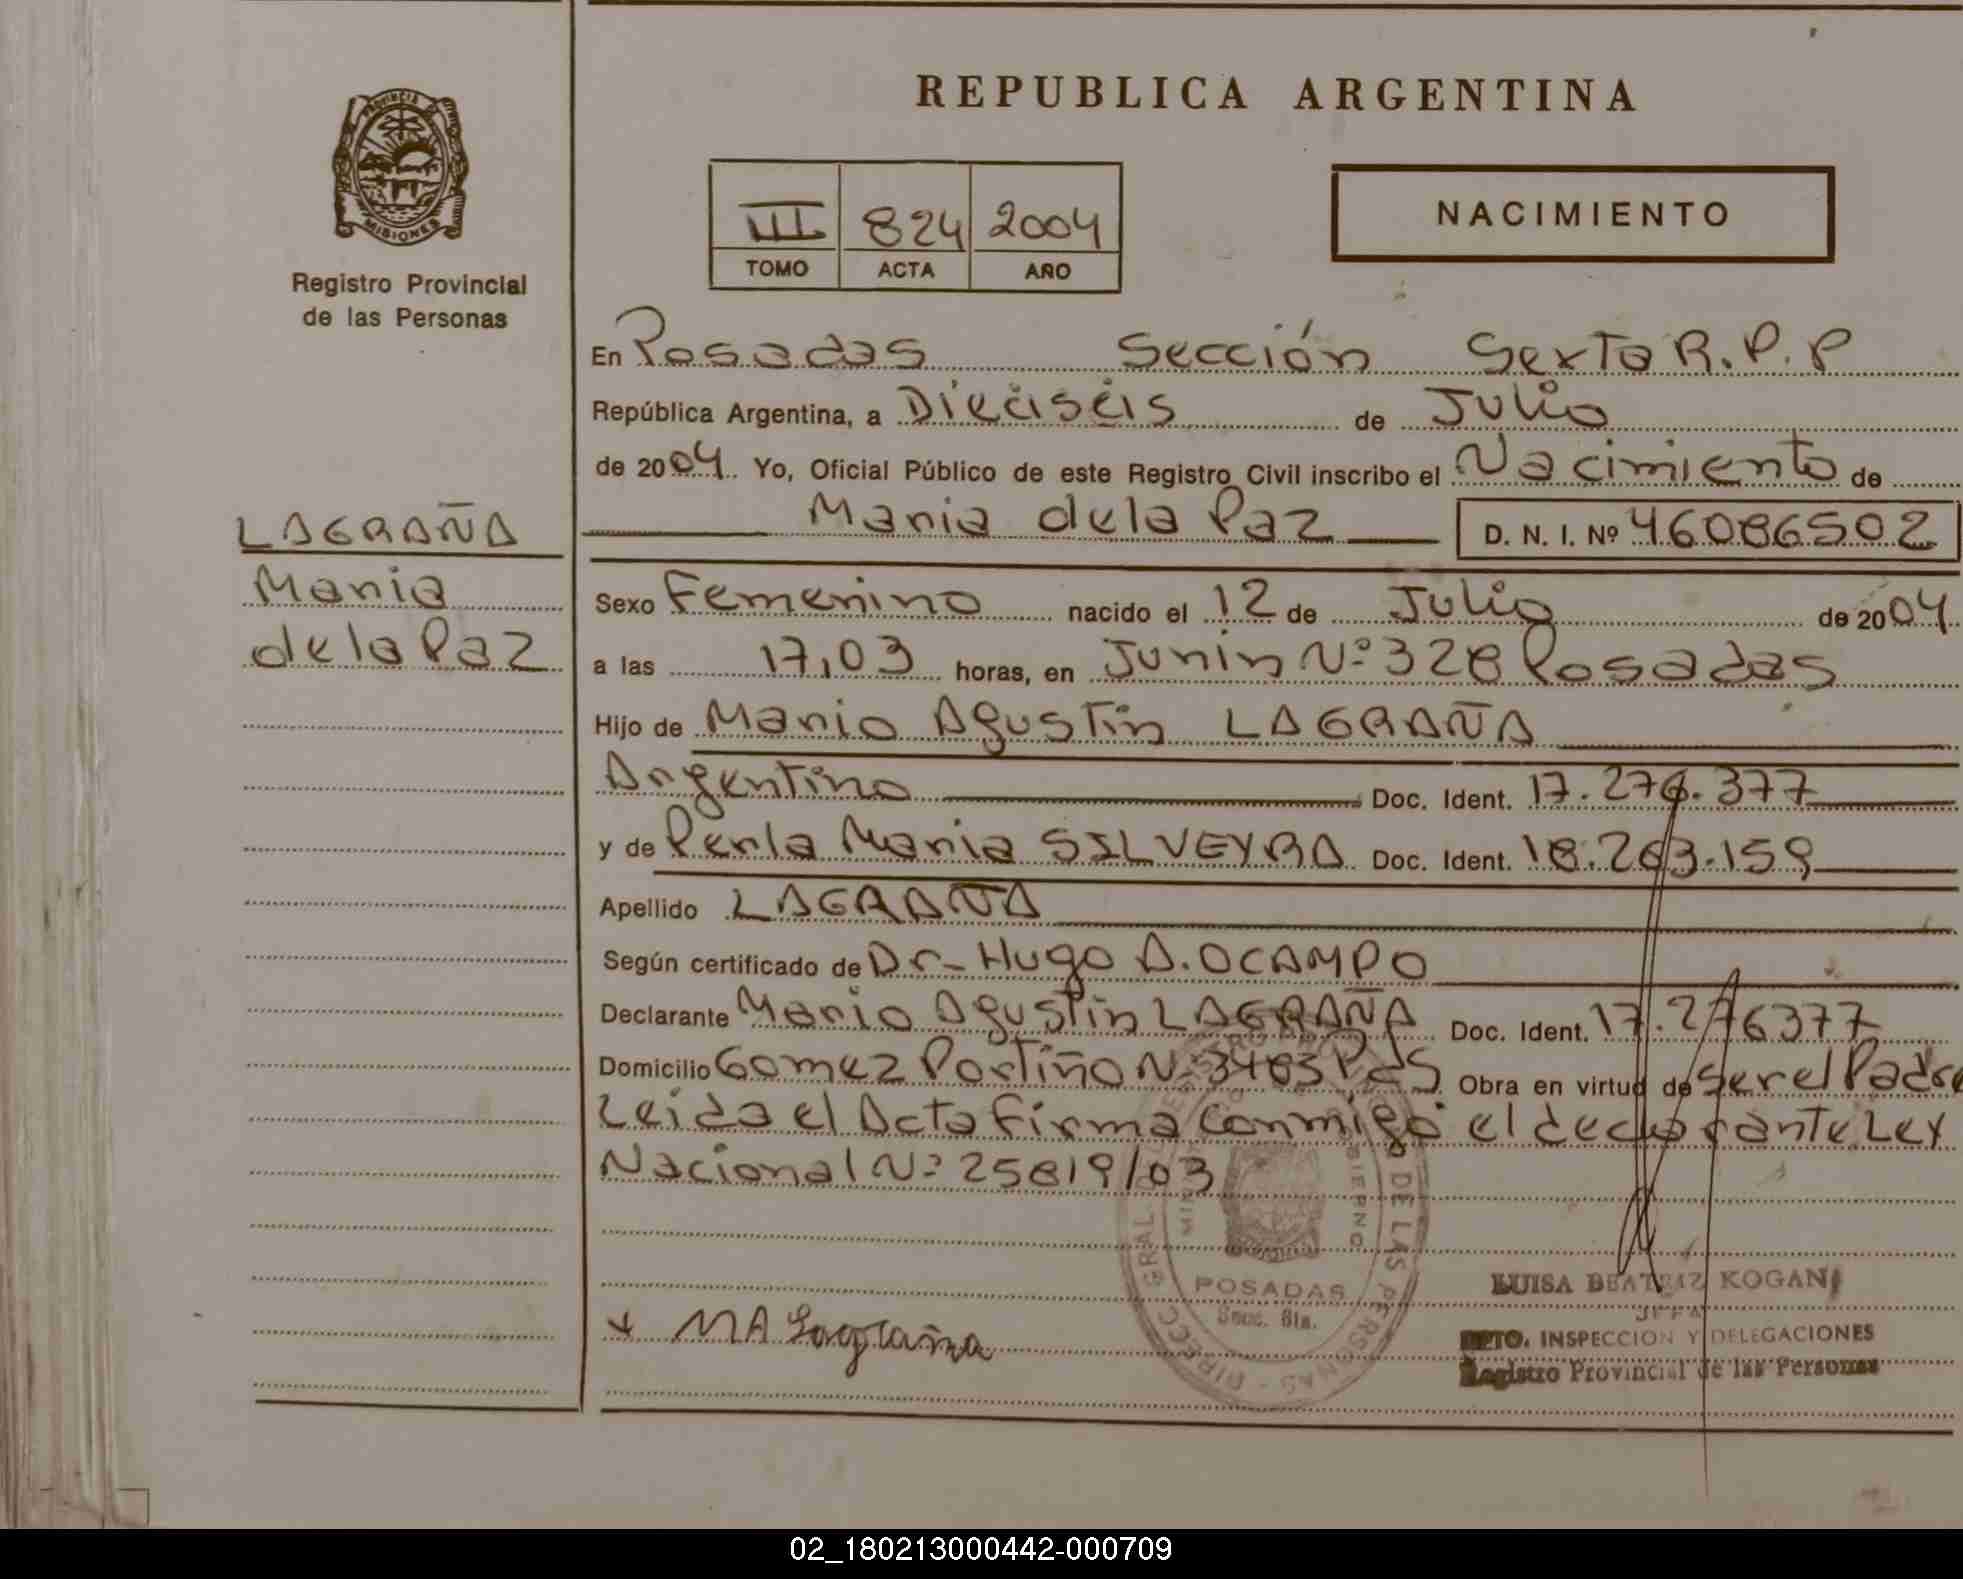 REPUBLICA ARGENTINA
PROVINCIA DE MISIONES
Registro Provincial
de las Personas
III 824 2004
TOMO ACTA AÑO
NACIMIENTO
En Posadas Sección Sexta R.P.P
República Argentina, a Dieciseis de Julio
de 2004 Yo, Oficial Público de este Registro Civil inscribo el Nacimiento de
Maria de la Paz D. N. I. Nº 46086502
LAGRAÑA
Maria
de la Paz
Sexo Femenino nacido el 12 de Julio de 2004
a las 17,03 horas, en Junin Nº 328 Posadas
Hijo de Mario Agustin LAGRAÑA
Argentino Doc. Ident. 17.276.377
y de Perla Maria SILVEYRA Doc. Ident. 18.263.159
Apellido LAGRAÑA
Según certificado de Dr- Hugo A. OCAMPO
Declarante Mario Agustin LAGRAÑA Doc. Ident. 17.276377
Domicilio Gomez Portiño Nº 3463 Pdas Obra en virtud de ser el Padre
Leida el Acta firma conmigo el declarante Ley
Nacional Nº 25819/03
MA Lagraña
DIRECC GRAL DE LAS PERSONAS
POSADAS
Secc. 6ta.
LUISA BEATRIZ KOGAN
JEFA
DPTO. INSPECCION Y DELEGACIONES
Registro Provincial de las Personas
02_180213000442-000709